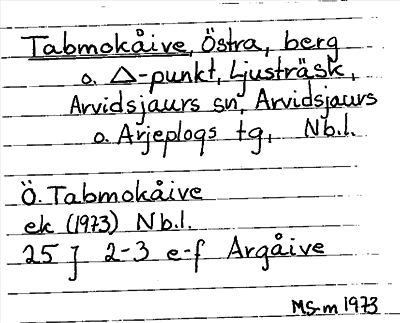 Tabmokåive, Östra, berg
o. Δ-punkt, Ljusträsk,
Arvidsjaurs sn, Arvidsjaurs
o. Arjeplogs tg, Nb.l.
Ö. Tabmokåive
ek (1973) Nb.l.
25 J 2-3 e-f Argåive
MS-m 1973